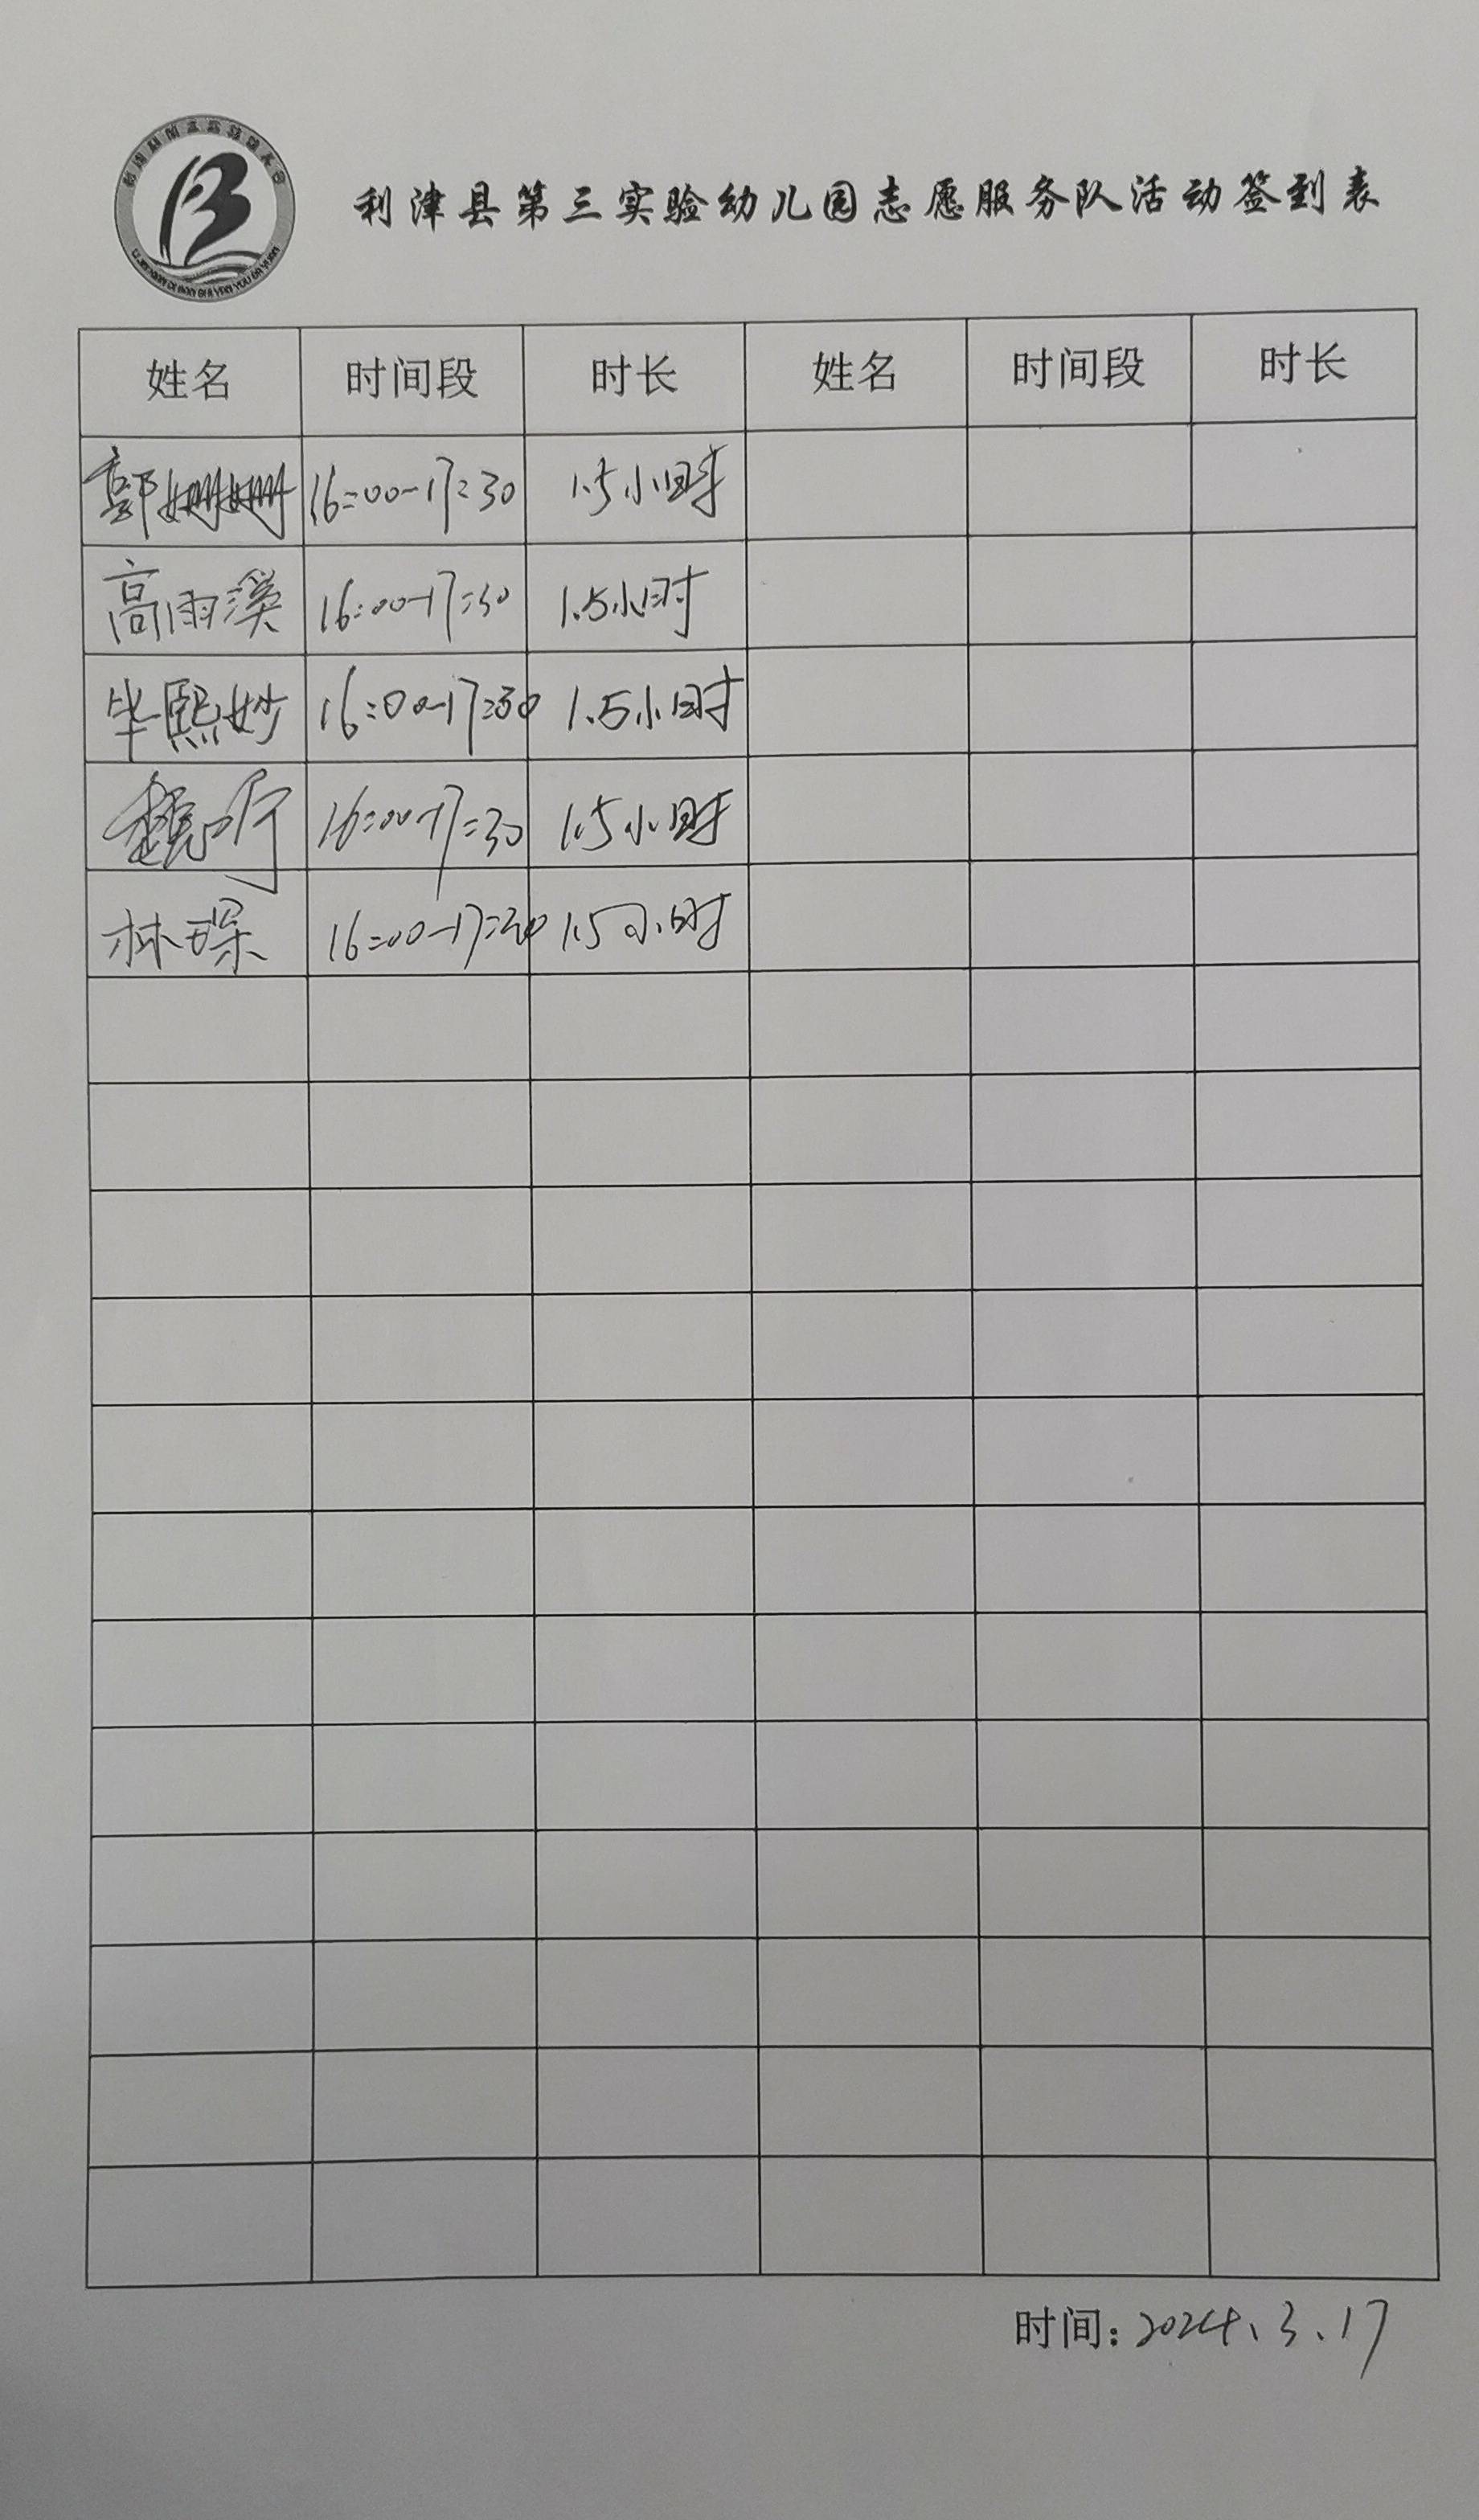 利津县第三实验幼儿园志愿服务队活动签到表
姓名 时间段 时长 姓名 时间段 时长
郭姗姗 16:00-17:30 1.5小时
高雨溪 16:00-17:30 1.5小时
毕熙妙 16:00-17:30 1.5小时
魏 16:00-17:30 1.5小时
林琛 16:00-17:30 1.5小时
时间:2024.3.17